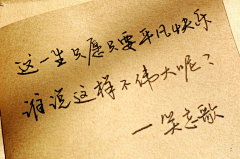 这一生只愿只要平凡快乐
谁说这样不伟大呢？
一笑忘歌